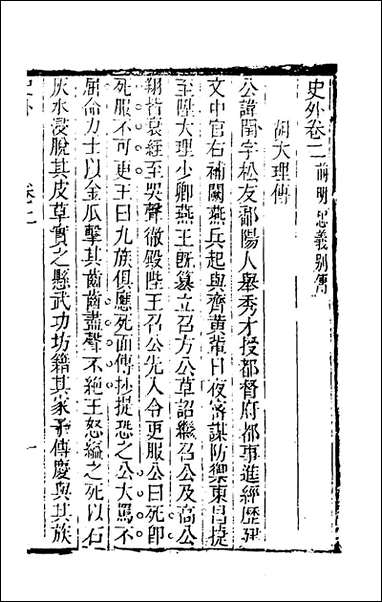 史外卷二 前明忠義別傳
胡大理傳
公諱閏字松友鄱陽人舉秀才授都督府都事進經歷建
文中官右補闕燕兵起與齊黃輩日夜密謀防禦東昌捷
至陞大理少卿燕王既篡立召方公草詔繼召公及高公
翔皆衰絰至哭聲徹殿陛王召公先入令更服公曰死卽
死服不可更王曰九族俱應死面傳抄提恐之公大罵不
屈命力士以金瓜擊其齒齒盡聲不絕王怒縊之死以石
灰水浸脫其皮草實之懸武功坊籍其家子傳慶與其族
史外
卷二
一